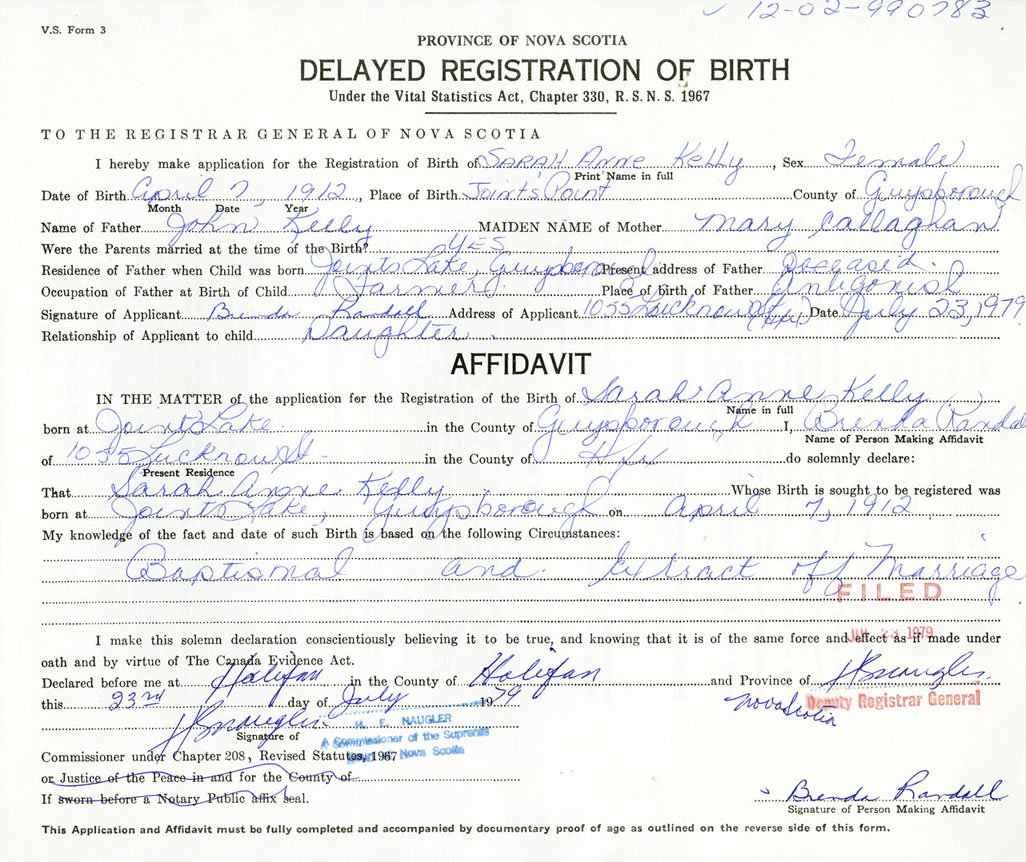 12-02-990783
V.S. Form 3
PROVINCE OF NOVA SCOTIA
DELAYED REGISTRATION OF BIRTH
Under the Vital Statistics Act, Chapter 330, R.S.N.S. 1967
TO THE REGISTRAR GENERAL OF NOVA SCOTIA
I hereby make application for the Registration of Birth of SARAH Anne Kelly, Sex Female
Print Name in full
Date of Birth April 7, 1912, Place of Birth Joint's Point County of Guysborough
Month Date Year
Name of Father John Kelly MAIDEN NAME of Mother Mary Callaghan
Were the Parents married at the time of the Birth? YES
Residence of Father when Child was born Joints Lake, Guysborough Present address of Father Deceased.
Occupation of Father at Birth of Child Farmer Place of birth of Father Antigonish
Signature of Applicant Brenda Randall Address of Applicant 1055 Lucknow St (Hfx) Date July 23, 1979
Relationship of Applicant to child Daughter.
AFFIDAVIT
IN THE MATTER of the application for the Registration of the Birth of Sarah Anne Kelly
Name in full
born at Joints Lake in the County of Guysborough I, Brenda Randall
Name of Person Making Affidavit
of 1055 Lucknow St in the County of Hfx do solemnly declare:
Present Residence
That Sarah Anne Kelly Whose Birth is sought to be registered was
born at Joints Lake, Guysborough on April 7, 1912
My knowledge of the fact and date of such Birth is based on the following Circumstances:
Baptismal and Extract off Marriage
FILED
JUL 23 1979
I make this solemn declaration conscientiously believing it to be true, and knowing that it is of the same force and effect as if made under
oath and by virtue of The Canada Evidence Act.
Declared before me at Halifax in the County of Halifax and Province of HENaugler
this 23rd day of July 1979 Nova Scotia Deputy Registrar General
HENaugler
H. E. NAUGLER
Signature of
A Commissioner of the Supreme
Court of Nova Scotia
Commissioner under Chapter 208, Revised Statutes, 1967
or Justice of the Peace in and for the County of
If sworn before a Notary Public affix seal.
Brenda Randall
Signature of Person Making Affidavit
This Application and Affidavit must be fully completed and accompanied by documentary proof of age as outlined on the reverse side of this form.